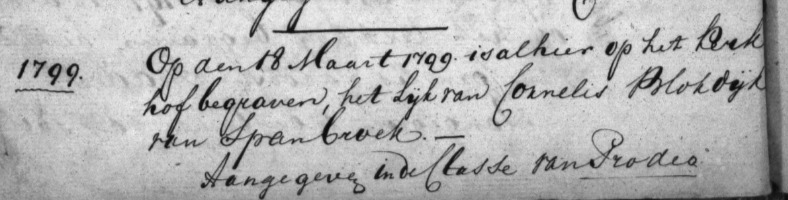 1799. Op den 18 Maart 1799. is alhier op het Kerk
hof begraven, het Lyk van Cornelis Blokdijk
van Spanbroek. —
Aangegeven in de Classe van Prodeo